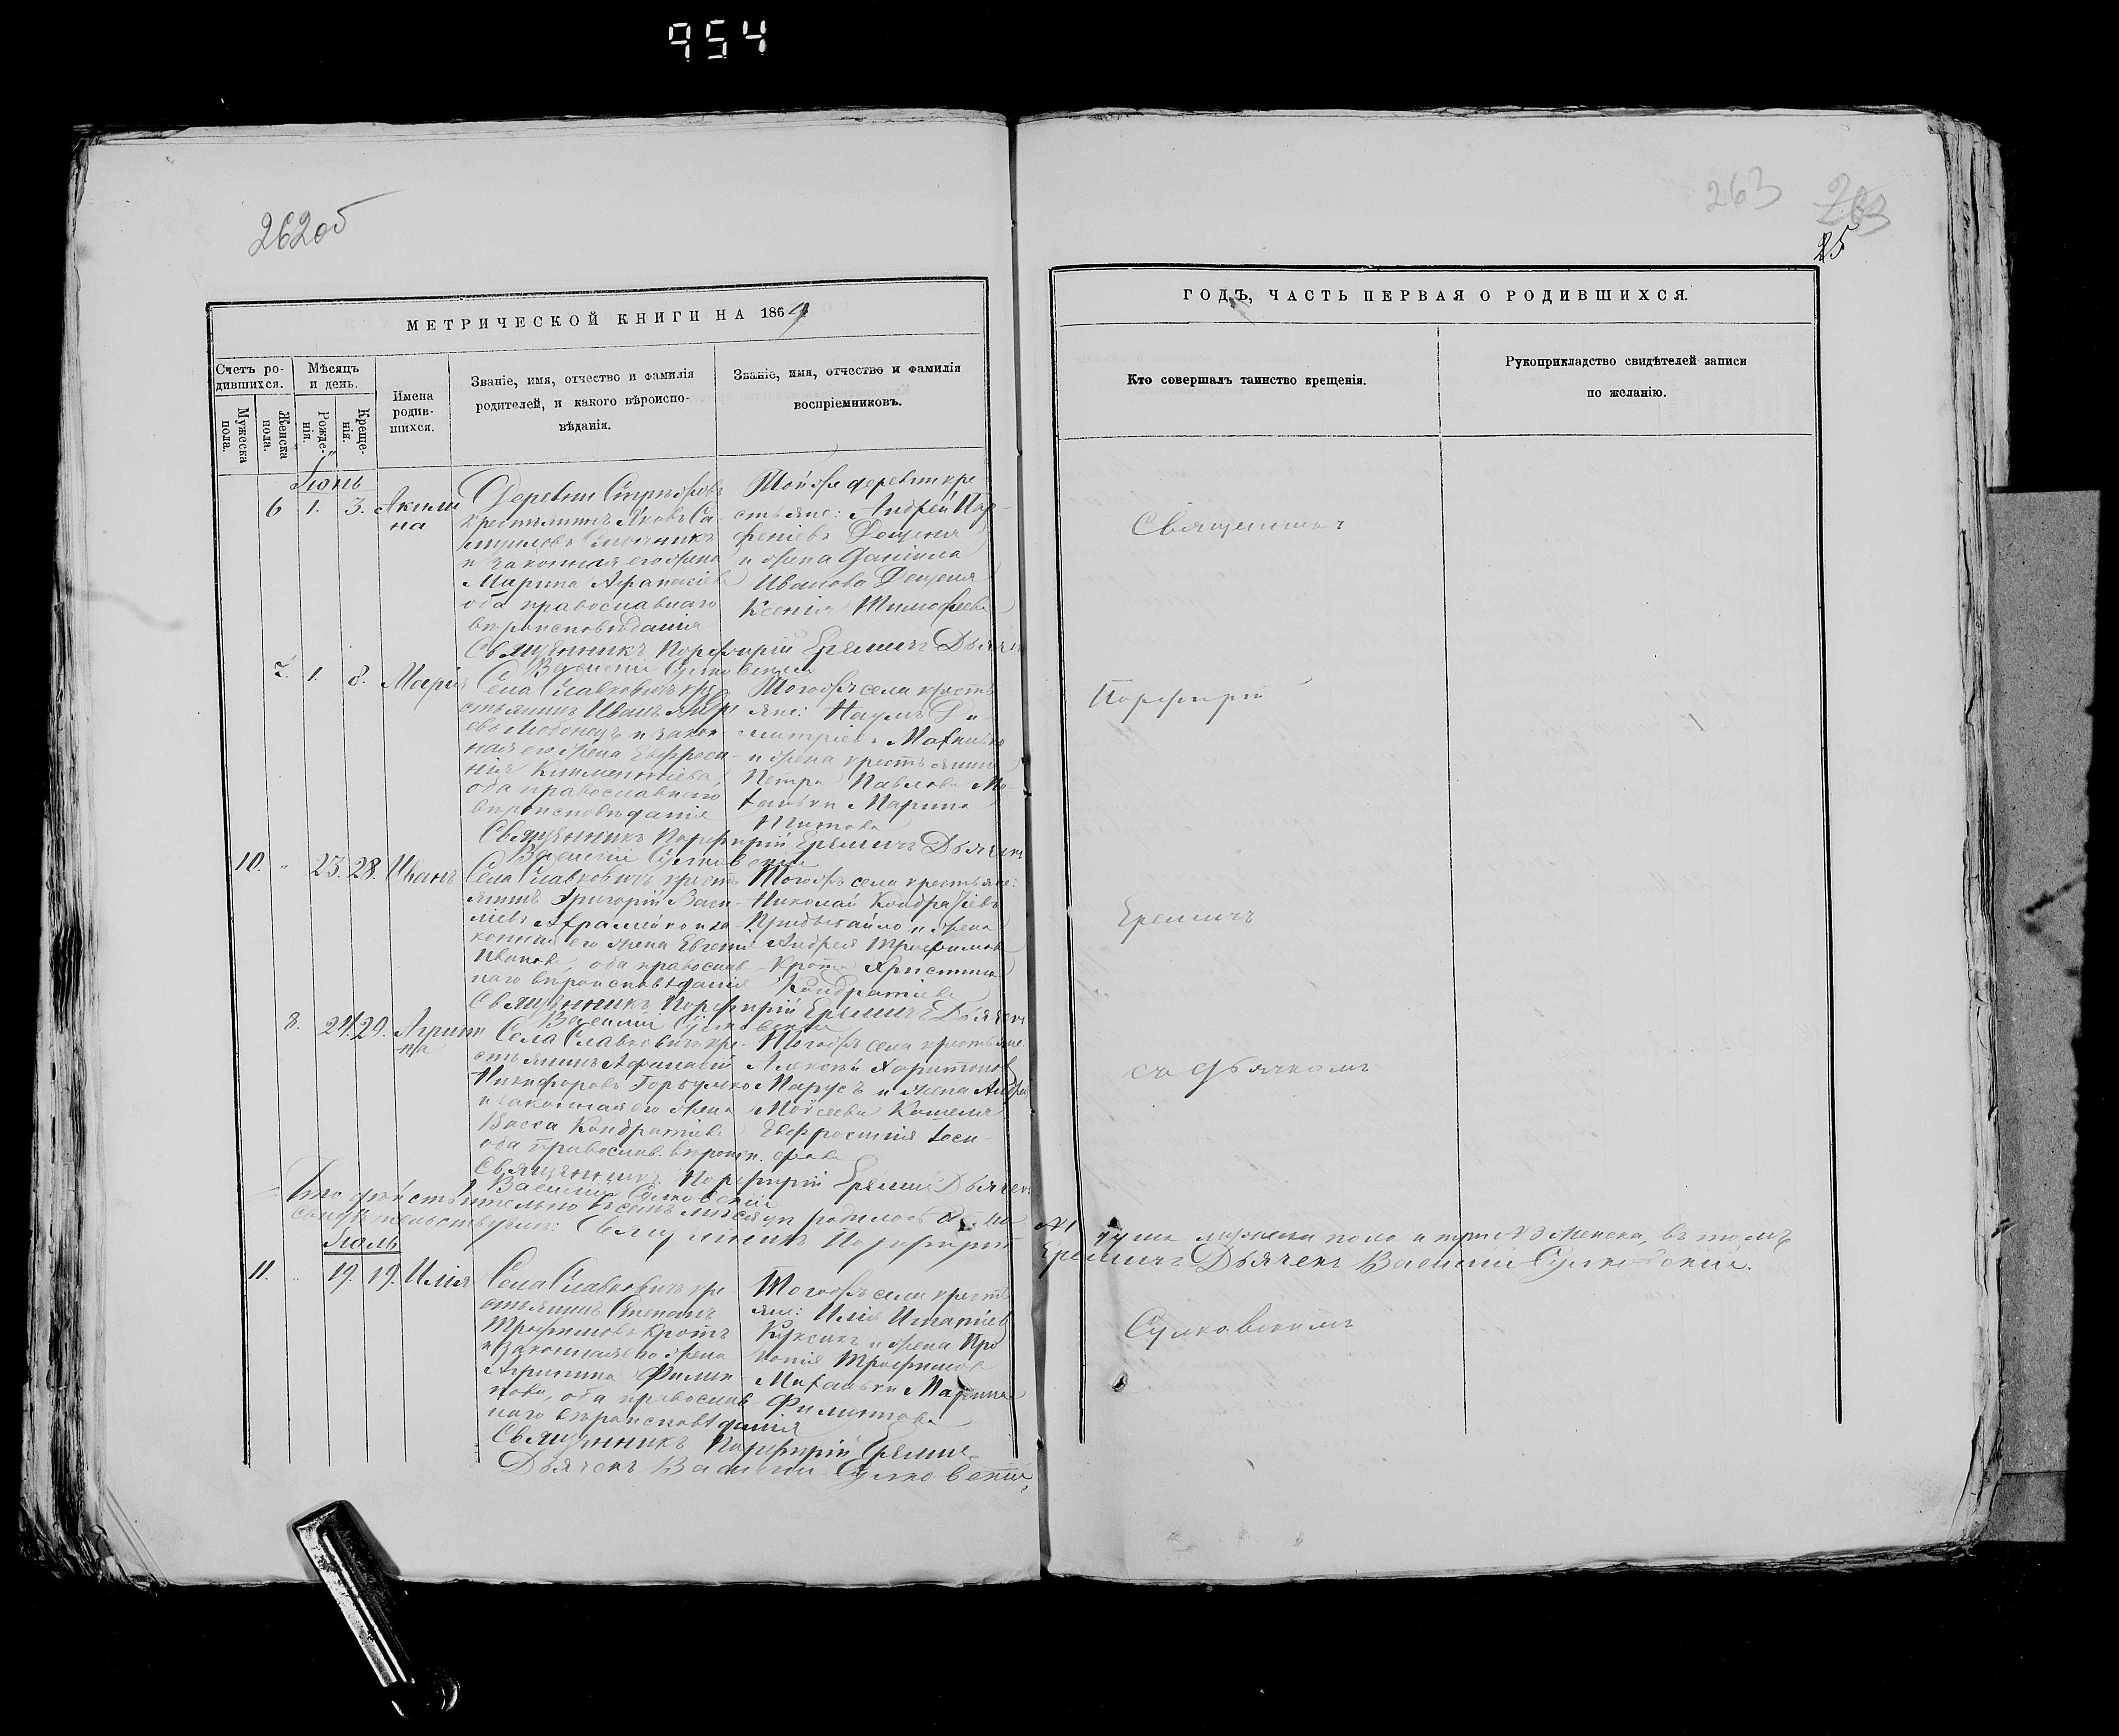 954
262об
263
263
25
МЕТРИЧЕСКОЙ КНИГИ НА 1869
ГОДЪ, ЧАСТЬ ПЕРВАЯ О РОДИВШИХСЯ.
Счетъ ро-
дившихся.
Мужеска
пола.
Женска
пола.
Мѣсяцъ
и день.
Рожде-
нія.
Креще-
нія.
Имена
родив-
шихся.
Званіе, имя, отчество и фамилія
родителей, и какого вѣроиспо-
вѣданія.
Званіе, имя, отчество и фамилія
воспріемниковъ.
Кто совершалъ таинство крещенія.
Рукоприкладство свидѣтелей записи
по желанію.
Іюнь
6 1. 3. Акили
на
Деревни
крестьянинъ Яковъ Га-
и законная его жена
Марина Афанасіева
оба православнаго
вѣроисповѣданія
Той же деревни кре-
стьяне: Андрей Пар-
феніевъ Дещеня
и жена Даніила
Иванова Дещеня
Ксенія Тимофеева
Священникъ Порфирій Еремичъ Дьячекъ
Василій Сулковскій
7. 1. 8. Марія
Села Славковичъ кре-
стьянинъ Иванъ
и закон-
ная его жена Евфроси-
нія Климентіева,
оба православнаго
вѣроисповѣданія
Тогожъ села кресть
яне: Наумъ Ди-
митріевъ
и жена крестьянина
Петра Павлова Ма-
ханьки Марина
Титова
Священникъ Порфирій Еремичъ Дьячекъ
Василій Сулковскій
10. " 23. 28. Иванъ
Села Славковичъ кресть
янинъ Григорій Васи-
ліевъ и за-
конная его жена Евгенія
Иванова, оба православ-
наго вѣроисповѣданія
Тогожъ села крестьяне:
Николай Кондратіевъ
и жена
Андрея Трофимова
Крота Христина
Кондратіева
Священникъ Порфирій Еремичъ Дьячекъ
Василій Сулковскій
8. 24. 29. Агрипи
на
Села Славковичъ кре-
стьянинъ Афанасій
Никифоровъ Горбулько
и законная его жена
Васса Кондратіева
оба православ. вѣроисп.
Тогожъ села крестьяне
Алексѣй Харитоновъ
Марусъ и жена Андрея
Моисеева Кошеля
Евфросинія Іоси-
фова
Священникъ Порфирій Еремичъ Дьячекъ
Василій Сулковскій
Что дѣйствительно въ семъ мѣсяцѣ родилось
№ 1 душа мужеска пола и три № 3 женска, въ томъ
свидѣтельствуемъ: Священникъ Порфирій
Еремичъ Дьячекъ Василій Сулковскій.
Іюль
11. " 19. 19. Илія
Села Славковичъ кре-
стьянинъ Степанъ
Трофимовъ Кротъ
и законная его жена
Агрипина Филип-
пова, оба православ
наго вѣроисповѣданія
Тогожъ села кресть
яне: Илія Игнатіевъ
Куксикъ и жена Про
копія Трофимова
Маханьки Марина
Филиппова
Священникъ Порфирій Еремичъ
Дьячекъ Василій Сулковскій
Священникъ
Порфирій
Еремичъ
съ дьячкомъ
Сулковскимъ